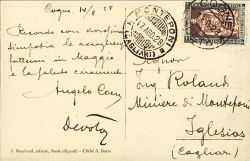 Cogne, 14/8 28
Ricordo con vivissima
simpatia le accoglienze
fattemi in Maggio
e la saluto caramente
Angelo Carr
devoto
J. Brocherel, éditeur, Aoste (déposé) - Cliché A. Darin
MONTEPONI
17 AGO. 28
(CAGLIARI)
Ing. Roland
Miniere di Monteponi
Iglesias
(Cagliari)